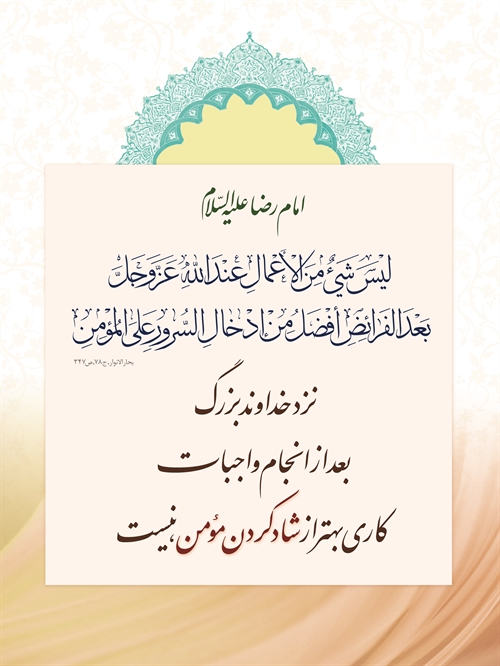 امام رضا علیه السلام
لَیسَ شَیءٌ مِنَ الأَعمالِ عِندَ اللهِ عَزَّوَجَلَّ
بَعدَ الفَرائِضِ أَفضَلُ مِن إِدخالِ السُّرورِ عَلَی المُؤمِنِ
بحارالانوار، ج۷۸، ص۳۴۷
نزد خداوند بزرگ
بعد از انجام واجبات
کاری بهتر از شاد کردن مؤمن، نیست